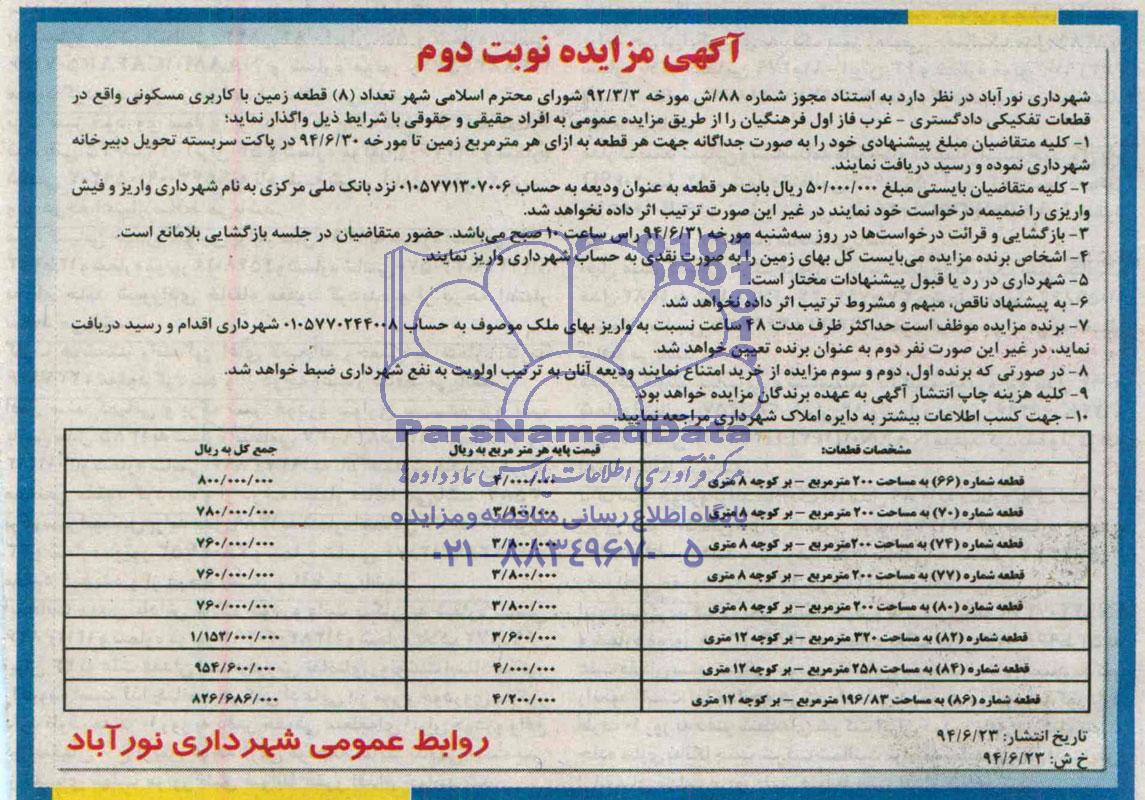 آگهی مزایده نوبت دوم
شهرداری نورآباد در نظر دارد به استناد مجوز شماره ۸۸/ش مورخه ۹۲/۳/۳ شورای محترم اسلامی شهر تعداد (۸) قطعه زمین با کاربری مسکونی واقع در
قطعات تفکیکی دادگستری – غرب فاز اول فرهنگیان را از طریق مزایده عمومی به افراد حقیقی و حقوقی با شرایط ذیل واگذار نماید؛
۱- کلیه متقاضیان مبلغ پیشنهادی خود را به صورت جداگانه جهت هر قطعه به ازای هر مترمربع زمین تا مورخه ۹۴/۶/۳۰ در پاکت سربسته تحویل دبیرخانه
شهرداری نموده و رسید دریافت نمایند.
۲- کلیه متقاضیان بایستی مبلغ ۵۰/۰۰۰/۰۰۰ ریال بابت هر قطعه به عنوان ودیعه به حساب ۰۱۰۵۷۷۱۳۰۷۰۰۶ نزد بانک ملی مرکزی به نام شهرداری واریز و فیش
واریزی را ضمیمه درخواست خود نمایند در غیر این صورت ترتیب اثر داده نخواهد شد.
۳- بازگشایی و قرائت درخواست‌ها در روز سه‌شنبه مورخه ۹۴/۶/۳۱ راس ساعت ۱۰ صبح می‌باشد. حضور متقاضیان در جلسه بازگشایی بلامانع است.
۴- اشخاص برنده مزایده می‌بایست کل بهای زمین را به صورت نقدی به حساب شهرداری واریز نمایند.
۵- شهرداری در رد یا قبول پیشنهادات مختار است.
۶- به پیشنهاد ناقص، مبهم و مشروط ترتیب اثر داده نخواهد شد
۷- برنده مزایده موظف است حداکثر ظرف مدت ۴۸ ساعت نسبت به واریز بهای ملک موصوف به حساب ۰۱۰۵۷۷۰۲۴۴۰۰۸ شهرداری اقدام و رسید دریافت
نماید، در غیر این صورت نفر دوم به عنوان برنده تعیین خواهد شد.
۸- در صورتی که برنده اول، دوم و سوم مزایده از خرید امتناع نمایند ودیعه آنان به ترتیب اولویت به نفع شهرداری ضبط خواهد شد.
۹- کلیه هزینه چاپ انتشار آگهی به عهده برندگان مزایده خواهد بود.
۱۰- جهت کسب اطلاعات بیشتر به دایره املاک شهرداری مراجعه نمایید.
ParsNamadData
مشخصات قطعات: قیمت پایه هر متر مربع به ریال جمع کل به ریال
قطعه شماره (۶۶) به مساحت ۲۰۰ مترمربع – بر کوچه ۸ متری ۴/۰۰۰/۰۰۰ ۸۰۰/۰۰۰/۰۰۰
قطعه شماره (۷۰) به مساحت ۲۰۰ مترمربع – بر کوچه ۸ متری ۳/۹۰۰/۰۰۰ ۷۸۰/۰۰۰/۰۰۰
قطعه شماره (۷۴) به مساحت ۲۰۰مترمربع – بر کوچه ۸ متری ۳/۸۰۰/۰۰۰ ۷۶۰/۰۰۰/۰۰۰
قطعه شماره (۷۷) به مساحت ۲۰۰ مترمربع – بر کوچه ۸ متری ۳/۸۰۰/۰۰۰ ۷۶۰/۰۰۰/۰۰۰
قطعه شماره (۸۰) به مساحت ۲۰۰ مترمربع – بر کوچه ۸ متری ۳/۸۰۰/۰۰۰ ۷۶۰/۰۰۰/۰۰۰
قطعه شماره (۸۲) به مساحت ۳۲۰ مترمربع – بر کوچه ۱۲ متری ۳/۶۰۰/۰۰۰ ۱/۱۵۲/۰۰۰/۰۰۰
قطعه شماره (۸۴) به مساحت ۲۵۸ مترمربع – بر کوچه ۱۲ متری ۴/۰۰۰/۰۰۰ ۹۵۴/۶۰۰/۰۰۰
قطعه شماره (۸۶) به مساحت ۱۹۶/۸۳ مترمربع – بر کوچه ۱۲ متری ۴/۲۰۰/۰۰۰ ۸۲۶/۶۸۶/۰۰۰
مرکز فرآوری اطلاعات پارس نماد داده ها
پایگاه اطلاع رسانی مناقصه و مزایده
۰۲۱-۸۸۳۴۹۶۷۰-۵
تاریخ انتشار: ۹۴/۶/۲۳
خ ش: ۹۴/۶/۲۳
روابط عمومی شهرداری نورآباد